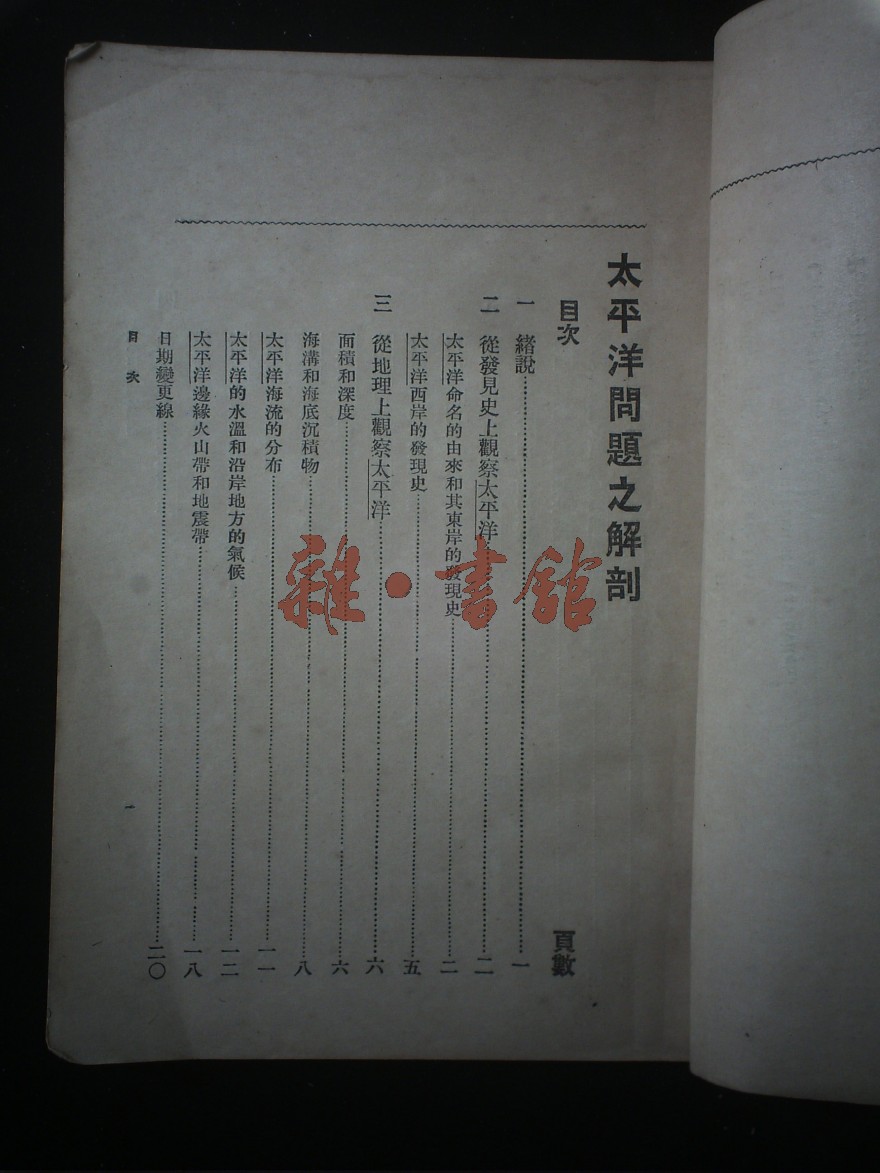 太平洋問題之解剖
目次 頁數
一 緒說……一
二 從發見史上觀察太平洋……二
太平洋命名的由來和其東岸的發現史……二
太平洋西岸的發現史……五
三 從地理上觀察太平洋……六
面積和深度……六
海溝和海底沉積物……八
太平洋海流的分布……一一
太平洋的水溫和沿岸地方的氣候……一二
太平洋邊緣火山帶和地震帶……一八
日期變更線……二〇
目次 一
雜·書館